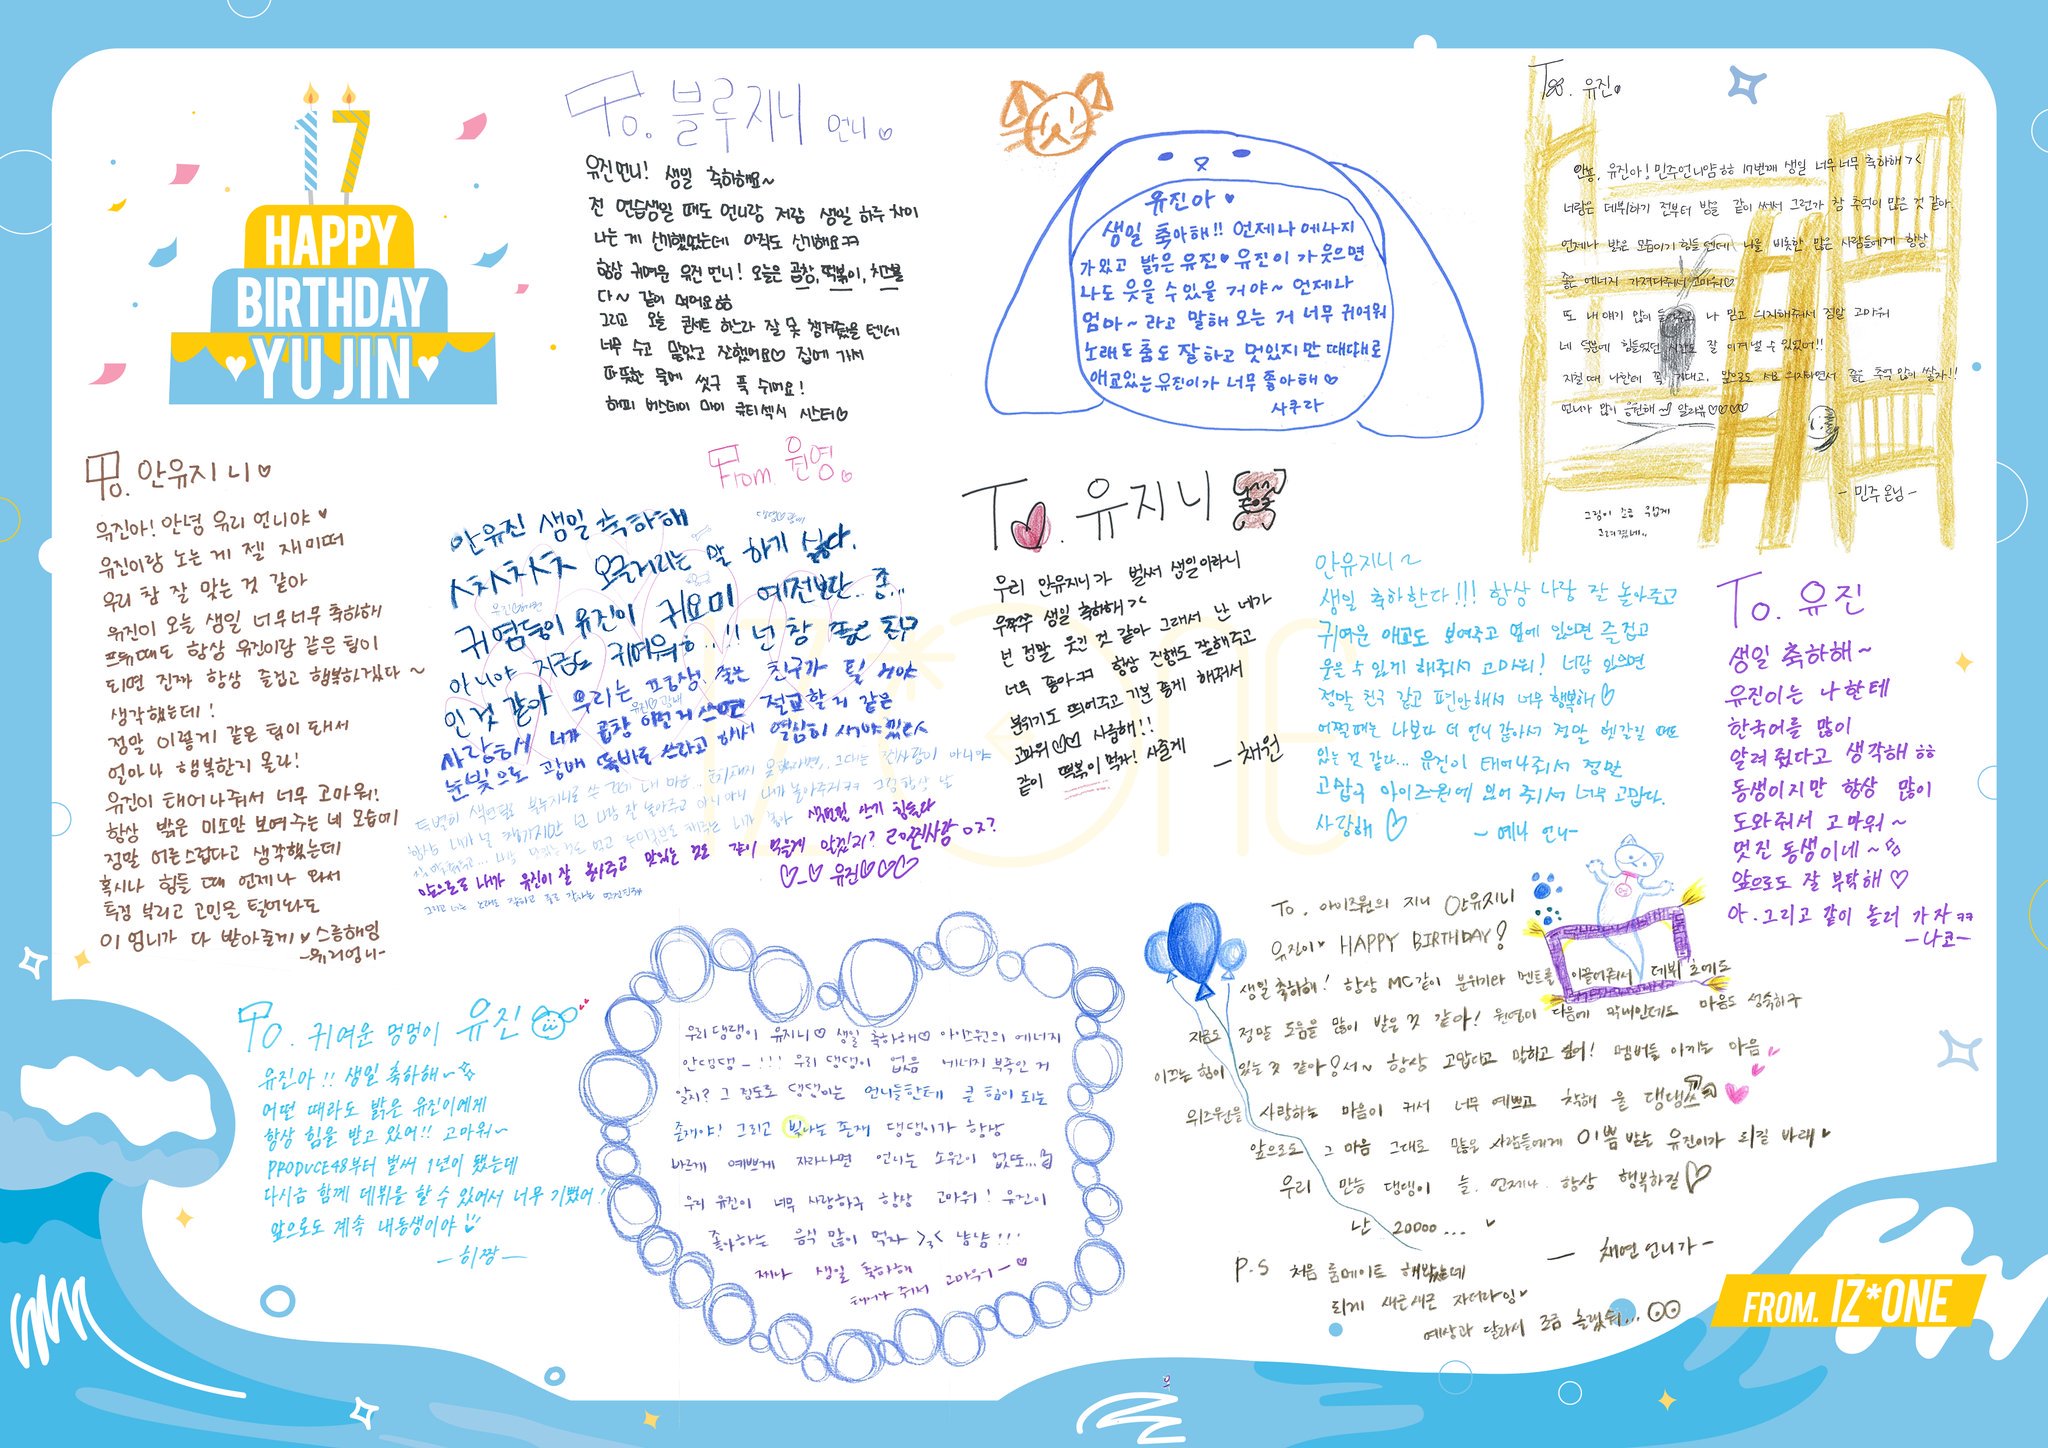 17
HAPPY
BIRTHDAY
YUJIN
To. 블루지니 언니♡
유진언니! 생일 축하해요~
전 연습생일 때도 언니랑 저랑 생일 하루 차이
나는 게 신기했었는데 아직도 신기해요ㅋㅋ
항상 귀여운 유진 언니! 오늘은 곱창, 떡볶이, 치즈볼
다~ 같이 먹어요ㅎㅎ
그리고 오늘 콘서트 하느라 잘 못 챙겨줬을 텐데
너무 수고 많았고 잘했어요♡ 집에 가서
따뜻한 물에 씻구 푹 쉬어요!
해피 버스데이 마이 큐티섹시 시스터♡
From 원영♡
유진아♥
생일 축하해!! 언제나 에너지
가있고 밝은 유진♥ 유진이가 웃으면
나도 웃을 수 있을 거야~ 언제나
엄마~ 라고 말해 오는 거 너무 귀여워
노래도 춤도 잘하고 멋있지만 때때로
애교있는 유진이가 너무 좋아해♡
사쿠라
To. 유진♥
안녕, 유진아! 민주언니얌ㅎㅎ 17번째 생일 너무너무 축하해><
너랑은 데뷔하기 전부터 방을 같이 써서 그런가 참 추억이 많은 것 같아.
언제나 밝은 모습이기 힘들텐데 나를 비롯한 많은 사람들에게 항상
좋은 에너지 가져다줘서 고마워♡
또 내 얘기 많이 들어주고 나 믿고 의지해줘서 정말 고마워
네 덕분에 힘들었던 시간도 잘 이겨낼 수 있었어!!
지칠 때 나한테 꼭 기대고, 앞으로도 서로 의지하면서 좋은 추억 많이 쌓자!!
언니가 많이 응원해~! 알라뷰♡♡♡♡
- 민주 온님 -
그림이 조금 무섭게
그려졌네..
To. 안유지니♡
유진아! 안녕 유리 언니야♥
유진이랑 노는 게 젤 재미떠
우리 참 잘 맞는 것 같아
유진이 오늘 생일 너무너무 축하해
프듀때도 항상 유진이랑 같은 팀이
되면 진짜 항상 즐겁고 행복하겠다~
생각했는데!
정말 이렇게 같은 팀이 돼서
얼마나 행복한지 몰라!
유진이 태어나줘서 너무 고마워!
항상 밝은 미소만 보여주는 네 모습에
정말 어른스럽다고 생각했는데
혹시나 힘들 때 언제나 와서
투정 부리고 고민을 털어놔도
이 엄니가 다 받아줄게♥ 스릉해잉
-유리엉니-
안유진 생일 축하해
사차차차 오글거리는 말 하기 싫다.
귀염둥이 유진이 귀요미 예전보단.. 좀...
아니야 지금도 귀여워ㅎ..!! 넌 참 좋은 친구
인 것 같아 우리는 평생 좋은 친구가 될 거야
사랑해서 네가 곱창 이런거 쓰면 절교할거 같은
눈빛으로 광배 똑바로 쓰라고 해서 열심히 써야겠다
앞으로도 내가 유진이 잘 놀아주고 맛있는 것도 같이 먹을게 알겠지? 
♡_♡ 유진♡♡♡♡
To. 유지니
우리 안유지니가 벌써 생일이라니
우쭈쭈 생일 축하해><
넌 정말 웃긴 것 같아 그래서 난 네가
너무 좋아ㅋㅋ 항상 진행도 잘해주고
분위기도 띄어주고 기분 좋게 해줘서
고마워♡♡ 사릉해!!
같이 떡볶이 먹자! 사줄게
- 채원
안유지니~
생일 축하한다!!! 항상 나랑 잘 놀아주고
귀여운 애교도 보여주고 옆에 있으면 즐겁고
웃을 수 있게 해줘서 고마워! 너랑 있으면
정말 친구 같고 편안해서 너무 행복해♡
어쩔때는 나보다 더 언니 같아서 정말 헷갈릴 때도
있는 것 같다... 유진이 태어나줘서 정말
고맙구 아이즈원에 있어 주어서 너무 고맙다.
사랑해♡
~ 예나 언니~
To. 유진
생일 축하해~
유진이는 나한테
한국어를 많이
알려줬다고 생각해ㅎㅎ
동생이지만 항상 많이
도와줘서 고마워~
멋진 동생이네~☆
앞으로도 잘 부탁해♡
아. 그리고 같이 놀러 가자ㅋㅋ
-나코-
To. 귀여운 멍멍이 유진
유진아!! 생일 축하해~☆
어떤 때라도 밝은 유진이에게
항상 힘을 받고 있어!! 고마워~
PRODUCE48부터 벌써 1년이 됐는데
다시금 함께 데뷔을 할 수 있어서 너무 기뻤어!
앞으로도 계속 내동생이야
-히짱-
우리댕댕이 유지니♡ 생일 축하해♡ 아이즈원의 에너지
안댕댕-!!! 우리 댕댕이 없음 에너지 부족인 거
알지? 그 정도로 댕댕이는 언니들한테 큰 힘이 되는
존재야! 그리고 빛나는 존재 댕댕이가 항상
바르게 예쁘게 자라나면 언니는 소원이 없또...
우리 유진이 너무 사랑하구 항상 고마워! 유진이
좋아하는 음식 많이 먹자 >3< 냠냠!!!
제나 생일 축하해
태어나 줘서 고마워-♡
To. 아이즈원의 지니 안유지니
유진이♥ HAPPY BIRTHDAY!
생일축하해! 항상 MC같이 분위기랑 멘트를 이끌어줘서 데뷔 초에도
지금도 정말 도움을 많이 받은 것 같아! 원영이 다음에 막내인데도 마음도 성숙하구
이끄는 힘이 있는 것 같아! 서~ 항상 고맙다고 말하고 싶어! 멤버들 아끼는 마음
위즈원을 사랑하는 마음이 커서 너무 예쁘고 착해 울 댕댕
앞으로도 그 마음 그대로 많은 사람들에게 이쁨 받는 유진이가 되길 바래♥
우리 만능 댕댕이 늘. 언제나. 항상 행복하길♡
난 20000...♥
- 채연 언니가 -
P.S 처음 룸메이트 해봤는데
되게 새근새근 자더라잉♥
예상과 달라서 조금 놀랬숴...
FROM. IZ*ONE